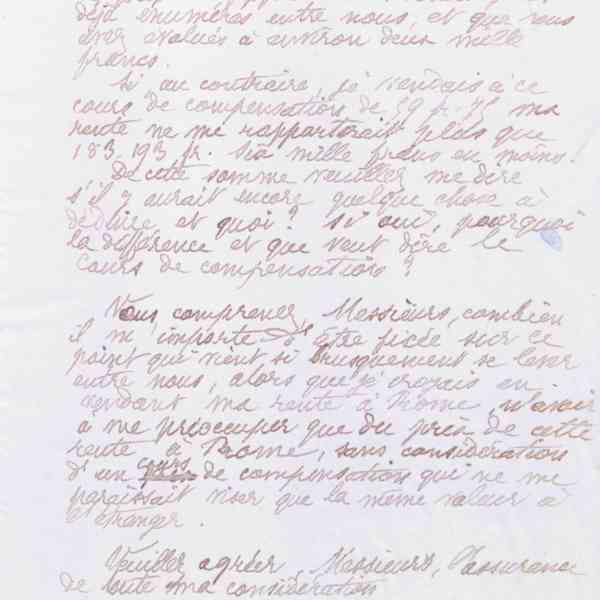 déjà énumérés entre nous, et que vous
avez évalués à environ deux mille
francs.
Si au contraire, je vendais à ce
cours de compensation de 89 fr. 75 ma
rente ne me rapporterait plus que
183.193 fr. Six mille francs en moins.
De cette somme veuillez me dire
s'il y aurait encore quelque chose à
déduire et quoi? Si oui, pourquoi
la différence et que veut dire le
cours de compensation?
Vous comprenez, Messieurs, combien
il m'importe d'être fixée sur ce
point qui vient si brusquement se lever
entre nous, alors que je croyais en
vendant ma rente à Rome, n'avoir
à me préoccuper que du prix de cette
rente à Rome, sans considération
d'un cours de compensation qui ne me
paraissait viser que la même valeur à
l'étranger.
Veuillez agréer, Messieurs, l'assurance
de toute ma considération